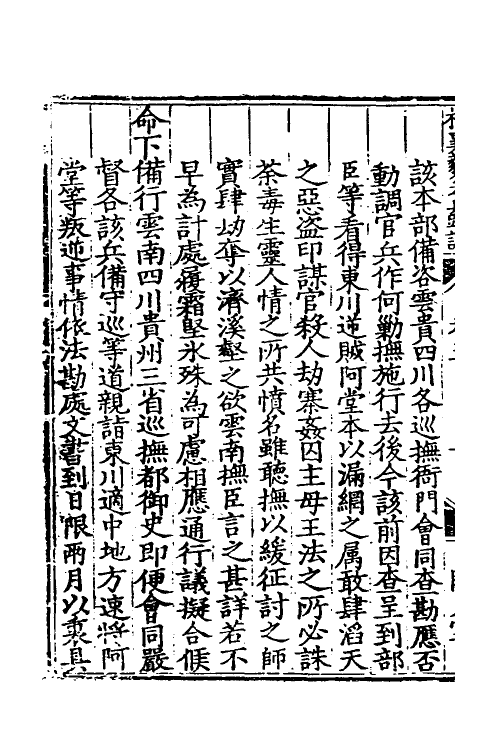 該本部備咨雲貴四川各巡撫衙門會同查勘應否
動調官兵作何勦撫施行去後今該前因查呈到部
臣等看得東川逆賊阿堂本以漏網之属敢肆滔天
之惡盜印謀官殺人劫寨姦囚主母王法之所必誅
荼毒生靈人情之所共憤名雖聽撫以緩征討之師
實肆劫奪以濟溪壑之欲雲南撫臣言之甚詳若不
早為計處履霜堅氷殊為可慮相應通行議擬合候
命下備行雲南四川貴州三省巡撫都御史即便會同嚴
督各該兵備守巡等道親詣東川適中地方速將阿
堂等叛逆事情依法勘處文書到日限兩月以裏具